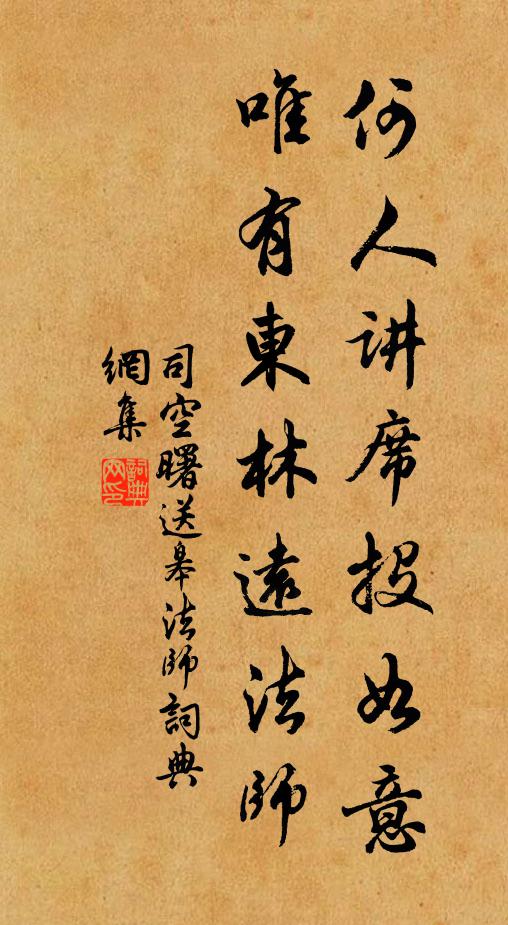 何人讲席投如意
唯有東林遠法師
司空曙送皋法師詞典
網集
詞典
网印